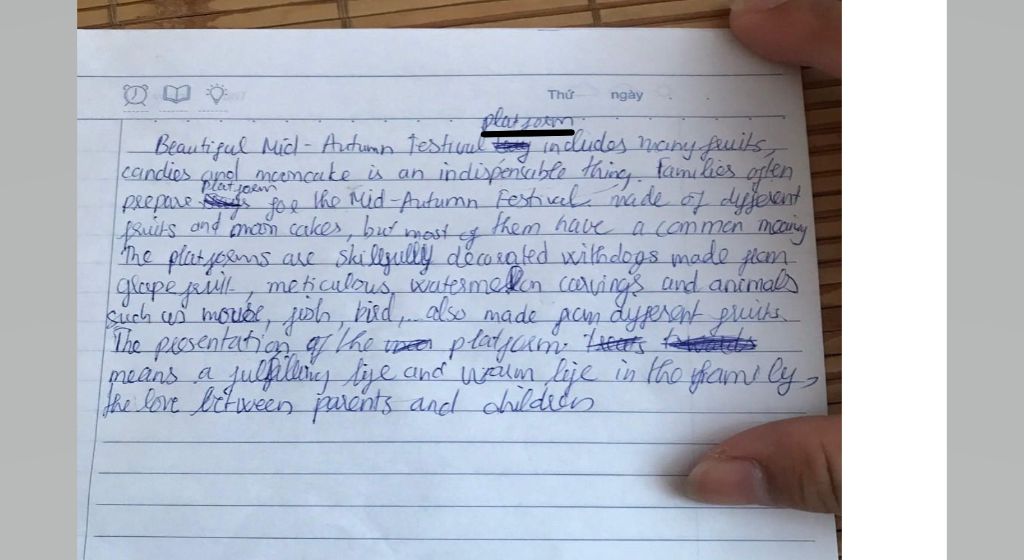 Thứ ngày
platform
Beautiful Mid-Autumn Festival includes many fruits,
candies and mooncake is an indispensable thing, Families often
platform
prepare for the Mid-Autumn Festival. made of different
fruits and moon cakes, but most of them have a common meaning
The platforms are skillfully decorated with dogs made from
grapefruit, meticulous, watermelon carvings and animals
such as mouse, fish, bird,... also made from different fruits.
The presentation of the platform.
means a fulfilling life and warm life in the family,
the love between parents and children